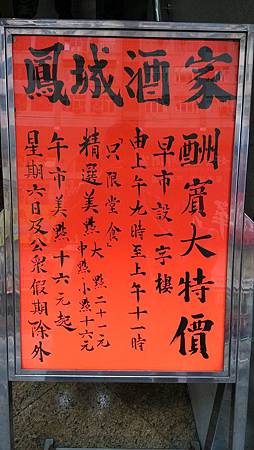 鳳城酒家
酬賓大特價
早市設一字樓
由上午九時至上午十一時
「只限堂食」
精選美點 大點二十一元
中點小點十六元
午市美點十六元起
星期六日及公眾假期除外